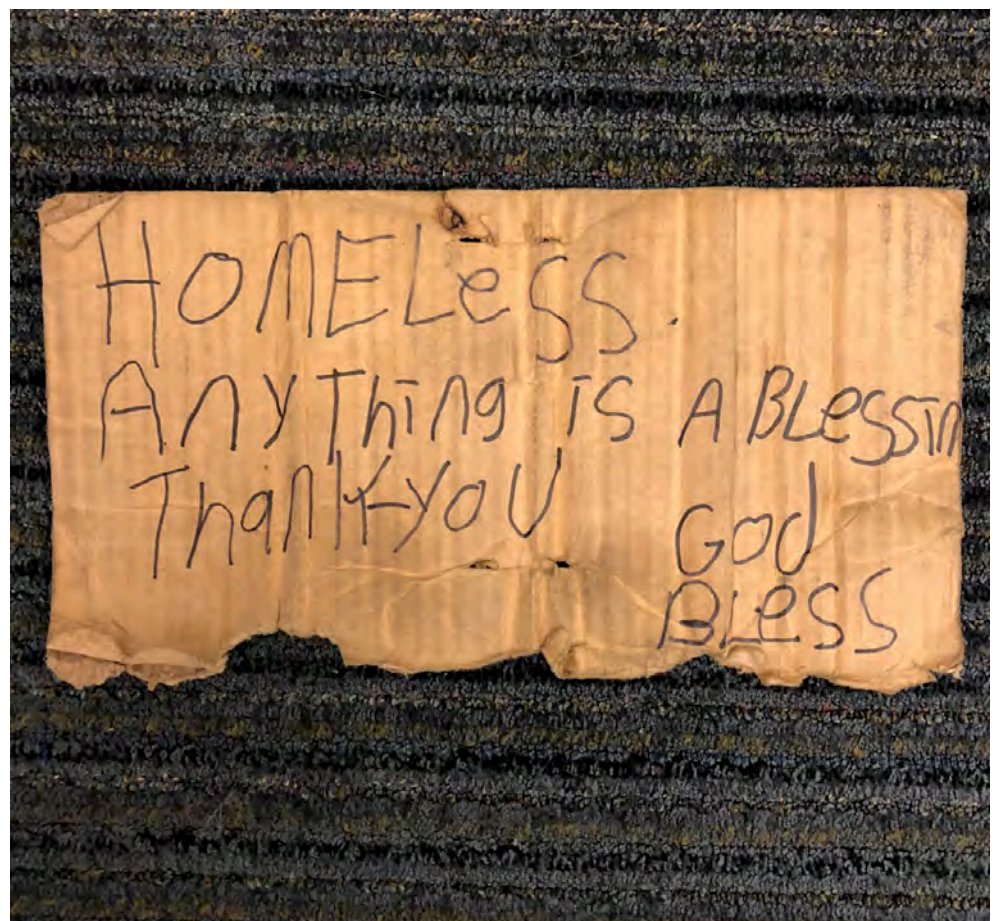 HOMELeSS.
AnyThing is A BLeSSin
ThanKyoU
God
BLeSS